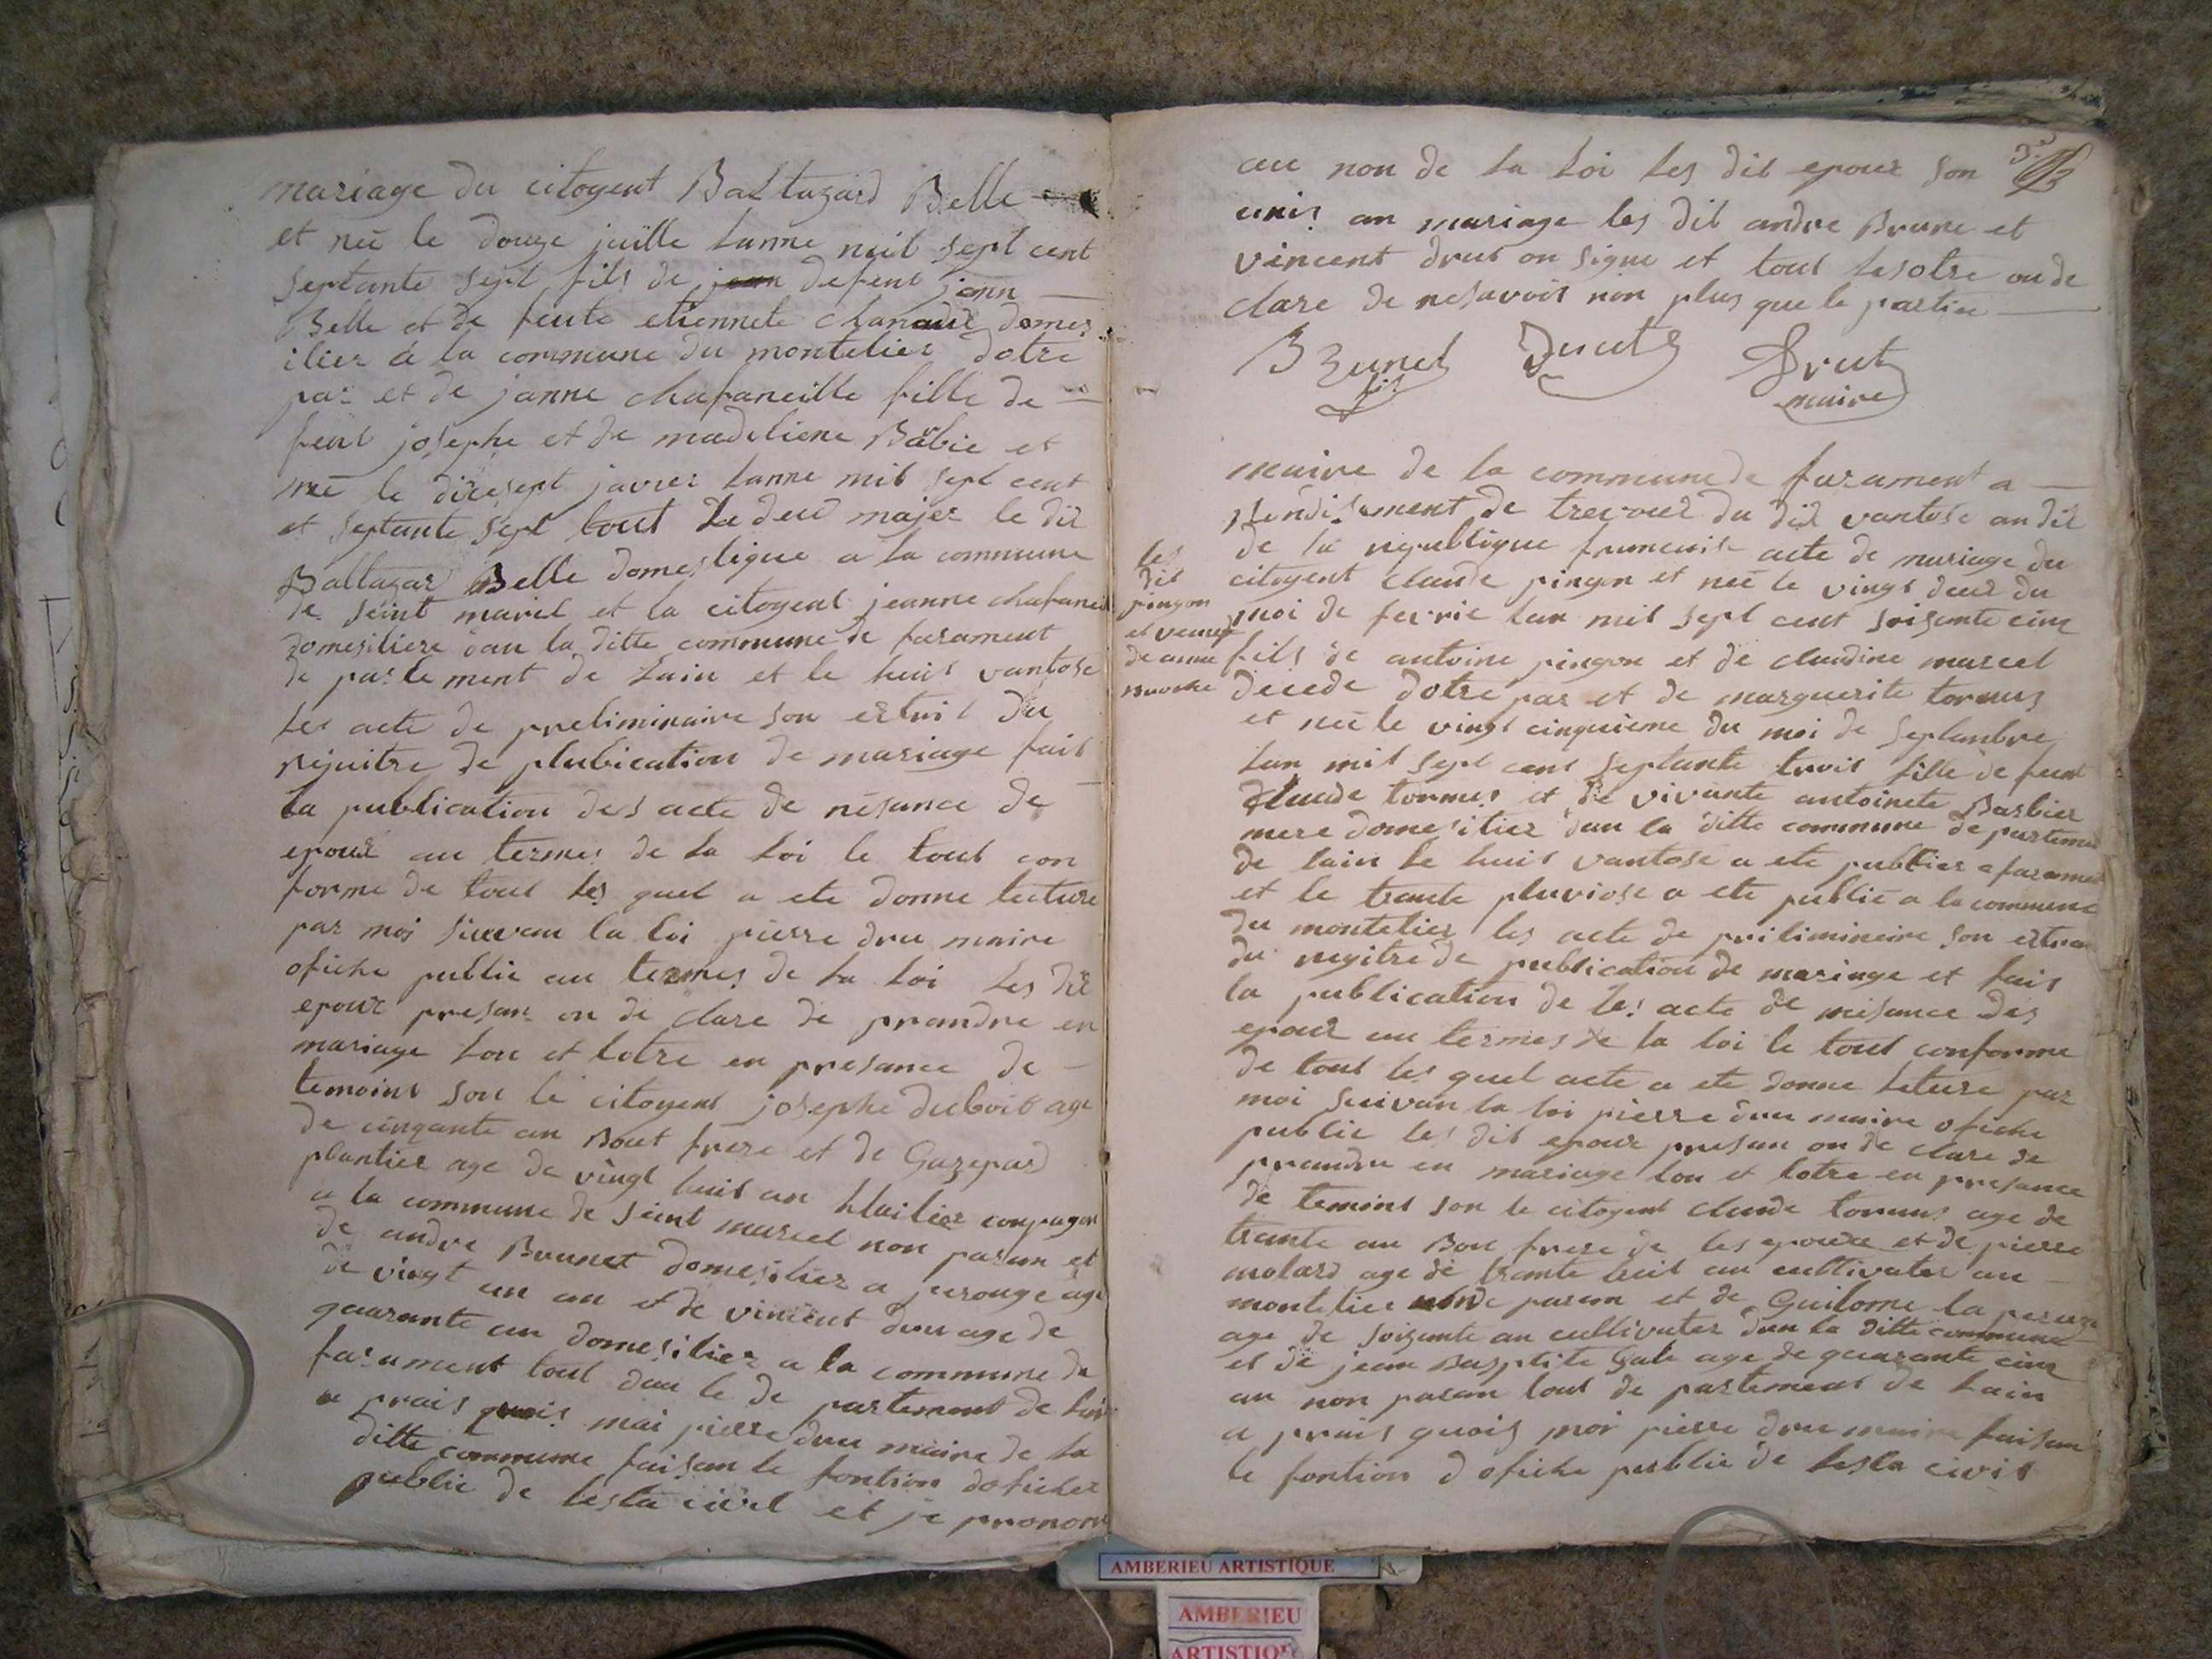 mariage du citoyent Baltazard Belle
et neü le douze juille lanne mil sept cent
septante sept fils de jean defent jean
Belle et de feute etiennete chanaux domes
ilier à la commune du montelier dotre
par et de janne chafaneille fille de
feut josephe et de madeliene Babie et
neé le dixesept javrer lanne mil sept cent
et septante sept tout Le deu majer le dit
Baltazar Belle domestique a la commune
de seint marcel et la citoyent jeanne chafaneil
domesiliere dan la ditte commune de farament
de partement de lain et le huit vantose
les acte de preliminaire son estrait du
rejuitre de plubication de mariage fait
la publication des acte de nésance de
epoux au termes de la loi le tout con
forme de tout les quel a ete donne lecture
par moi siuvan la loi pierre dru maire
ofiche public au termes de la loi les dit
epoux presan on de clare de prandre en
mariage lon et lotre en presance de
temoins son le citoyent josephe dubois age
de cinqante an Bout frere et de Gazepard
plantier age de vingt huit an compagon
a la commune de seint marcel non paran et
de andre Brunet domesilier a perouge age
de vingt un an et de vincent dru age de
quarante an domesilier a la commune de
farament tout dan le de partement de lain
a prais quois moi pierre dru maire de la
ditte commune faisan le fontion doficher
public de lesta civil et je prononce
3
au non de la loi les dit epoux son
unis an mariage les dit andre Brune et
vincent drut on signe et tout lesotre on de
clare de nesavoir non plus que le partie
BRunet fils Druts Drut
maire
maire de la commune de farament a
rendisement de trevoux du dix vantose an dix
de la republique francaise acte de mariage du
citoyent claude pingon et neé le vingt deux du
moi de fevrie lan mil sept cent soisante cinq
les
dit
pingon
et veuf
de anne
fils de antoine pingon et de claudine marcel
decede dotre par et de marguerite tormus
et neé le vingt cinquieme du moi de septanbre
lan mil sept cent septante trois fille de feut
claude tormus et de vivante antoinete Barbier
mere domesilier dan la ditte commune de partement
de lain le huit vantose a ete publier a farament
et le trante pluviose a ete publié a la commune
du montelier les acte de priliminaire son estra
du regitre de publication de mariage et fait
la publication de les acte de nésance des
epoux au termes de la loi le tout conforme
de tout les quel acte a ete donne leture par
moi suivan la loi pierre dru maire ofiche
public les dit epoux presan on de clare se
prandre en mariage lon et lotre en presance
de temoins son le citoyent claude tormus age de
trante an Bou frere de les epouxe et de pierre
molard age de trante huit an cultivater au
montelier non de paran et de Guilome la
age de soisante an cultivater dan la ditte commune
et de jean Basptite Gale age de quarante cinq
an non paran tout de partement de lain
a prais quois moi pierre dru maire faisan
le fontion d ofiche public de lesta civit
AMBERIEU ARTISTIQUE
AMBERIEU
ARTISTIQUE